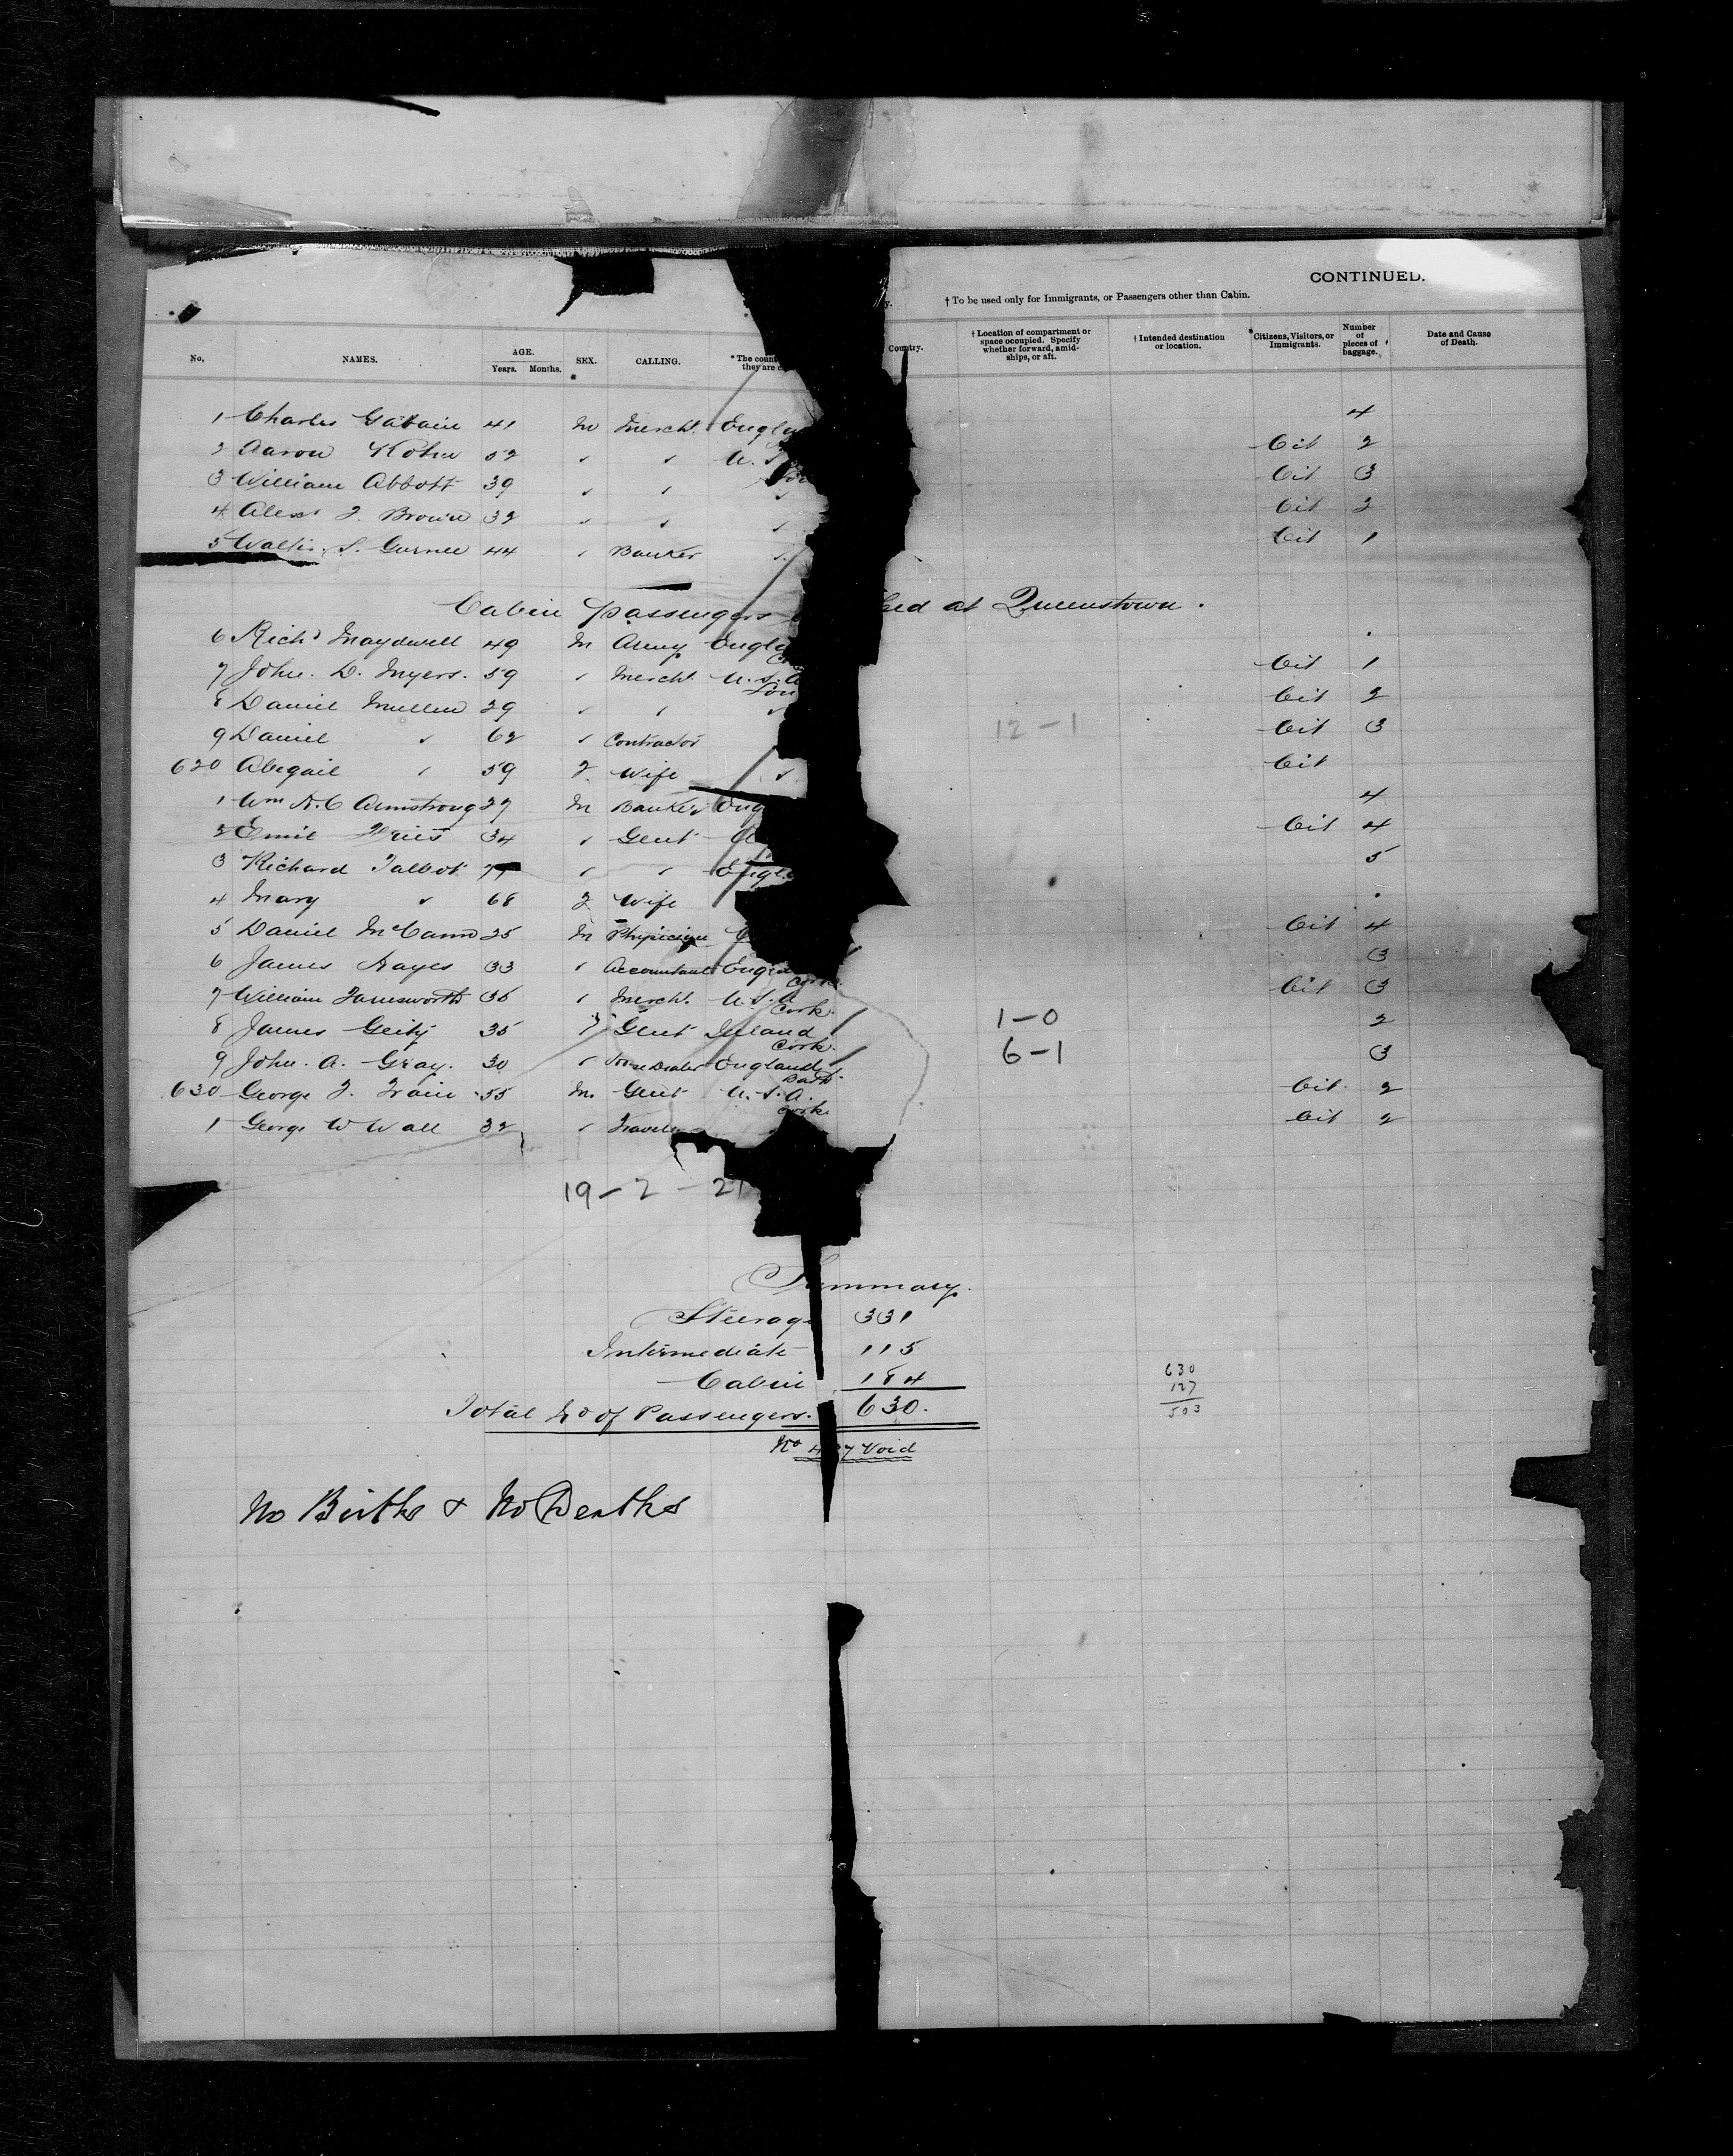 CONTINUED.
† To be used only for Immigrants, or Passengers other than Cabin.
No. NAMES. AGE. Years. Months. SEX. CALLING. * The count they are c Country. † Location of compartment or space occupied. Specify whether forward, amidships, or aft. † Intended destination or location. Citizens, Visitors, or Immigrants. Number of pieces of baggage. Date and Cause of Death.
1 Charles Gabain 41 M Mercht. Engla 4
2 Aaron Kohn 52 ✓ ✓ U.S Cit 2
3 William Abbott 39 ✓ ✓ ✓ Cit 3
4 Alexr F. Brown 32 ✓ ✓ ✓ Cit 2
5 Walter S. Gurnee 44 ✓ Banker ✓ Cit 1
Cabin Passengers ked at Queenstown.
6 Richd Maydwell 49 M Army Engla
7 John. D. Myers. 59 ✓ Mercht. U.S.A Cit 1
8 Daniel Mullen 29 ✓ ✓ ✓ Cit 2
9 Daniel ✓ 62 ✓ Contractor 12-1 Cit 3
620 Abigail ✓ 59 F Wife ✓ Cit
1 Wm H.C Armstrong 27 M Banker Eng 4
2 Emil 34 ✓ Gent Cit 4
3 Richard Talbot ✓ ✓ Engla 5
4 Mary ✓ 68 F Wife
5 Daniel McCann 25 M Physician Cit 4
6 James Hayes 33 ✓ Accountant Engla 3
Cork.
7 William Farnsworth 35 ✓ Mercht. U.S.A Cit 3
Cork.
8 James Geity 35 ✓ Gent Ireland 1-0 2
Cork.
9 John. A. Gray. 30 ✓ Horse Dealer England 6-1 3
630 George F. Train 55 M. Gent U.S.A. Cit. 2
Cork
1 George W Wall 32 ✓ Travele Cit 2
19-2-21
Summary.
Steerage 331
Intermediate 115
Cabin 184
Total No of Passengers. 630.
630
127
503
No 4 7 Void
No Births & No Deaths